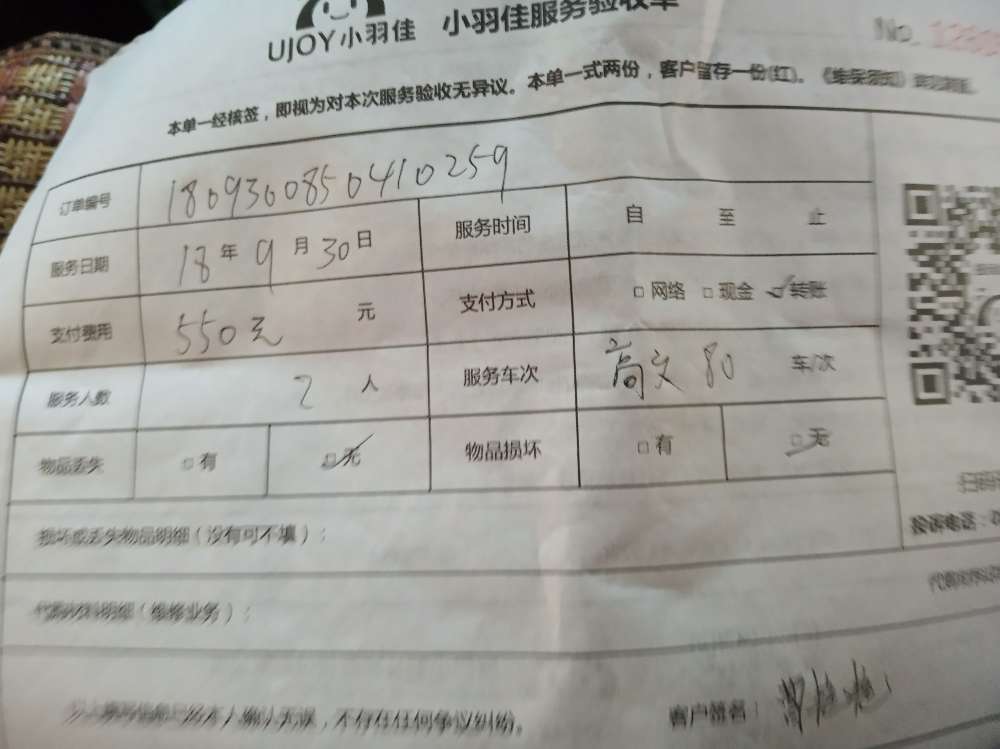 UJOY小羽佳 小羽佳服务验收单
No.
本单一经核签，即视为对本次服务验收无异议。本单一式两份，客户留存一份(红)。
订单编号 1809300850410259
服务日期 18年9月30日 服务时间 自 至 止
支付费用 550元 元 支付方式 □网络 □现金 □转账
服务人数 2人 服务车次 80 车/次
物品丢失 □有 □无 物品损坏 □有 □无
损坏或丢失物品明细（没有可不填）：
投诉电话：
明细（维修业务）：
不存在任何争议纠纷。 客户签名：